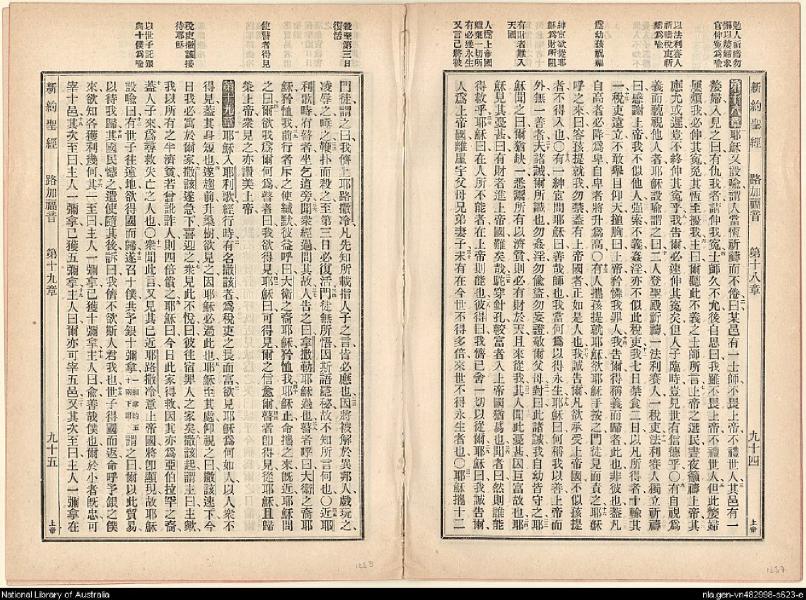 新約聖經 路加福音 第十八章 九十四 上帝
勉人祈禱勿
懈以嫠婦求
官伸冤為喻
以法利賽人
祈禱稅吏祈
禱為喻
紳宦欲從耶
穌為財所阻
有財者難入
天國
人為上帝國
離棄一切所
有必獲永生
第十八章 耶穌又設喻謂人當恆祈禱而不倦曰某邑有一士師不畏上帝不禮世人其邑有一
嫠婦入見之曰有仇我者請伸我冤士師久不允後自思曰我雖不畏上帝不禮世人但此嫠婦
屢煩我必伸其冤免其恆至擾我主曰爾聽此不義之士師所言上帝之選民晝夜籲禱上帝其
應尤或遲豈不終伸其冤乎我告爾必速伸其冤矣但人子臨時豈見世有信德乎〇有自視為
義而藐視他人者耶穌設喻謂之曰二人登聖殿祈禱一法利賽人一稅吏法利賽人獨立祈禱
曰感謝上帝我不似他人強索不義姦淫亦不似此稅吏我七日禁食二日以凡所得者十輸其
一稅吏遠立不敢舉目仰天搥胸曰上帝矜憐我罪人我告爾得稱義而歸者此也非彼也蓋凡
自高者必降為卑自卑者將升為高〇有人攜孩提就耶穌欲耶穌手按之門徒見而責之耶穌
呼之來曰容孩提就我勿禁蓋有上帝國者正如是人也我誠告爾凡欲承受上帝國不似孩提
者不得入也〇有一紳宦問耶穌曰善哉師也我當何為以得永生耶穌曰何稱我以善上帝而
外無一善者夫諸誡爾所識也勿姦淫勿偷盜勿妄證敬爾父母對曰此諸誡我自幼皆守之耶
穌聞之曰爾猶缺一悉鬻所有以濟貧則必有財於天且來從我其人聞此憂甚因巨富故也耶
穌見其憂甚曰有財者進上帝國難矣哉駝穿針孔較富者入上帝國猶易也聞者曰然則誰能
得救乎耶穌曰在人所不能者在上帝則能也彼得曰我儕已舍一切以從爾耶穌曰我誠告爾
人為上帝國離屋宇父母兄弟妻子未有在今世不得多倍來世不得永生者也〇耶穌攜十二
後至第三日
復活
使瞽者得見
稅吏撒該接
待耶穌
以世子託銀
與十僕為喻
門徒謂之曰我儕上耶路撒冷凡先知所載指人子之言皆必應也因將被解於異邦人戲玩之
凌辱之唾之鞭扑而殺之至第三日必復活門徒無所悟因斯語隱祕故不知所言何也〇近耶
利哥時有瞽者坐乞道旁聞眾經過問其故人告之曰拿撒勒耶穌過也瞽者呼曰大衛之裔耶
穌矜恤我前行者斥之使緘默彼益呼曰大衛之裔耶穌矜恤我耶穌止命攜之來既近耶穌問
之曰爾欲我為爾何為瞽者曰我欲得見耶穌曰可得見爾之信愈爾瞽者即得見從耶穌且歸
榮上帝眾見之亦讚美上帝
第十九章 耶穌入耶利哥經行時有名撒該者為稅吏之長而富欲見耶穌為何如人以人眾不
得見蓋其身短也遂趨前升桑樹欲見之因耶穌必過此也耶穌至其處仰視之曰撒該速下今
日我必寓於爾家撒該遂急下喜迎之眾見此不悅曰彼往宿罪人之家矣撒該起謂主曰主歟
我以所有之半濟貧若曾訛詐人則四倍償之耶穌曰今日此家得救因其亦為亞伯拉罕之裔
蓋人子來為尋救失亡之人也〇眾聞此言又見其已近耶路撒冷意上帝國將即顯現故耶穌
設喻曰有世子往遠地欲得國而歸遂召十僕共予銀十彌拿謂之曰爾以此貿易
以待我歸其國民憾之遣使隨其後訴曰我儕不欲斯人君我也世子得國而返命呼予銀之僕
來欲知各獲利幾何其一至曰主人一彌拿已獲十彌拿主人曰俞善哉僕也爾於小者既忠可
宰十邑其次至曰主人一彌拿已獲五彌拿主人曰爾亦可宰五邑又其次至曰主人一彌拿在
新約聖經 路加福音 第十九章 九十五 上帝
National Library of Australia
nla.gen-vn482998-s623-e